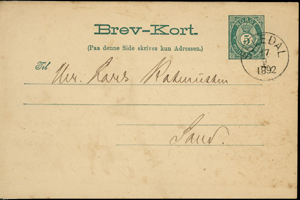 Brev-Kort.
(Paa denne Side skrives kun Adressen.)
Til
Hr. Lars Rasmussen
Sand.
5
7
1892